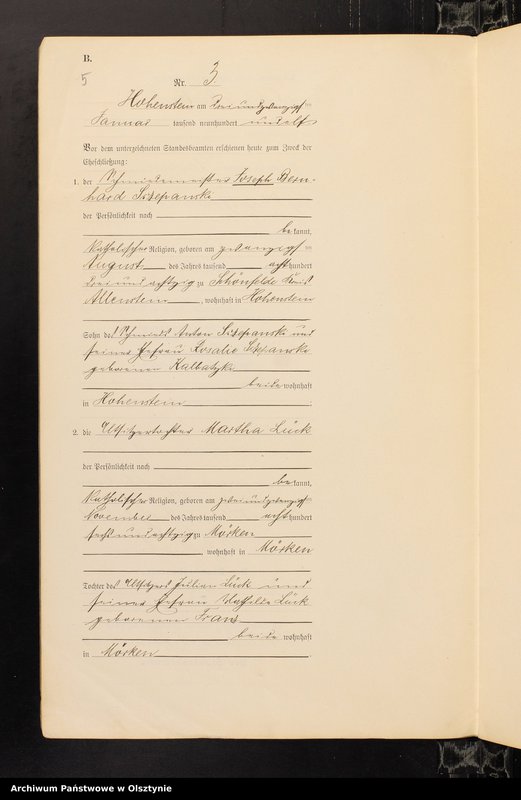 B.
5
Nr. 3
Hohenstein am dreiundzwanzigsten
Januar tausend neunhundert und elf
Vor dem unterzeichneten Standesbeamten erschienen heute zum Zweck der
Eheschließung:
1. der Schmiedemeister Joseph Bern-
hard Sczepanski
der Persönlichkeit nach
bekannt,
katholischer Religion, geboren am zwanzigsten
August des Jahres tausend achthundert
dreiundachtzig zu Schönfelde Kreis
Allenstein, wohnhaft in Hohenstein
Sohn des Schmieds Anton Sczepanski und
seiner Ehefrau Rosalie Sczepanski
geborenen Kalbatzki
beide wohnhaft
in Hohenstein
2. die Altsitzertochter Martha Lück
der Persönlichkeit nach
bekannt,
katholischer Religion, geboren am zweiundzwanzigsten
November des Jahres tausend achthundert
sechsundachtzig zu Mörken
wohnhaft in Mörken
Tochter des Altsitzers Julian Lück und
seiner Ehefrau Mathilde Lück
geborenen Frans
beide wohnhaft
in Mörken
Archiwum Państwowe w Olsztynie